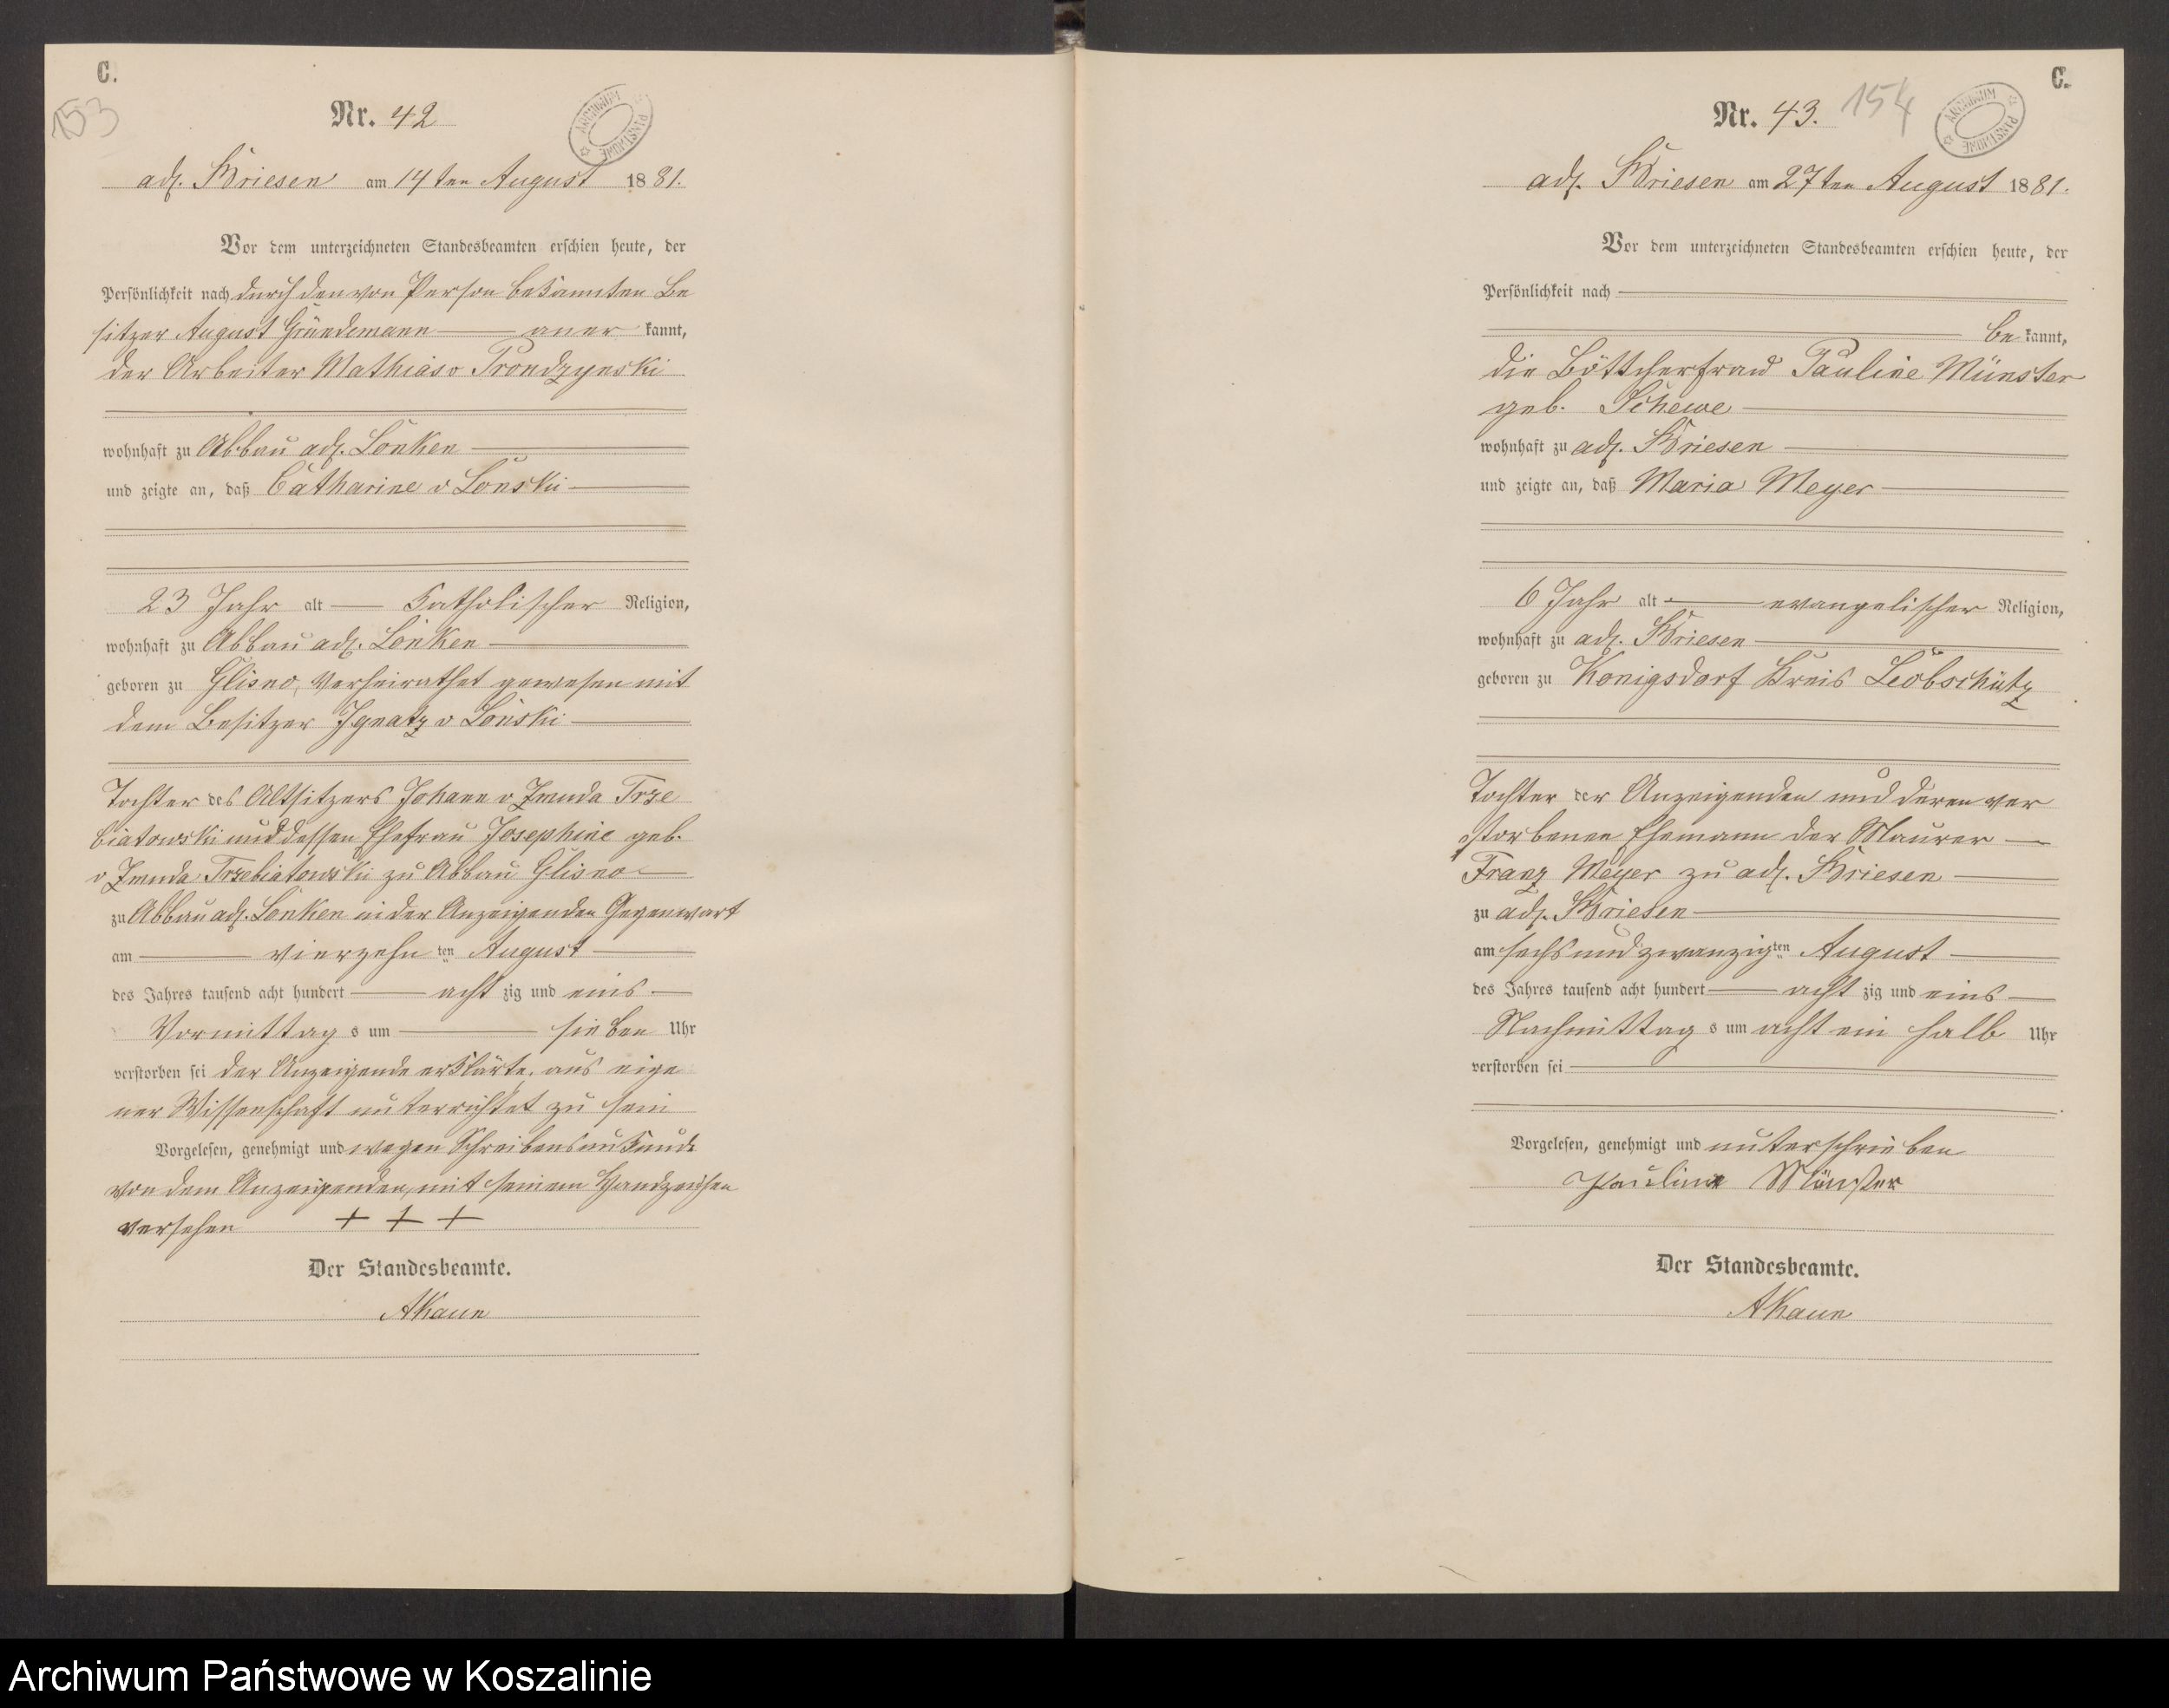 C.
153
Nr. 42
ARCHIWUM PAŃSTWOWE
adl. Briesen am 14ten August 1881.
Vor dem unterzeichneten Standesbeamten erschien heute, der
Persönlichkeit nach durch den von Person bekannten Be
sitzer August Gründemann anerkannt,
der Arbeiter Mathias v Prondzynski
wohnhaft zu Abbau adl. Lonken
und zeigte an, daß Catharine v Lonski
23 Jahr alt katholischer Religion,
wohnhaft zu Abbau adl. Lonken
geboren zu Glisno, verheirathet gewesen mit
dem Besitzer Ignatz v Lonski
Tochter des Altsitzers Johann v Zmuda Trze
biatowski und dessen Ehefrau Josephine geb.
v Zmuda Trzebiatowski zu Abbau Glisno
zu Abbau adl. Lonken in der Anzeigenden Gegenwart
am vierzehnten August
des Jahres tausend acht hundert achtzig und eins
Vormittags um sieben Uhr
verstorben sei der Anzeigende erklärte, aus eige
ner Wissenschaft unterrichtet zu sein
Vorgelesen, genehmigt und wegen Schreibensunkunde
von dem Anzeigenden, mit seinem Handzeichen
versehen + + +
Der Standesbeamte.
AKaun
C.
Nr. 43. 154
ARCHIWUM PAŃSTWOWE
adl. Briesen am 27ten August 1881.
Vor dem unterzeichneten Standesbeamten erschien heute, der
Persönlichkeit nach
bekannt,
die Böttcherfrau Pauline Münster
geb. Schewe
wohnhaft zu adl. Briesen
und zeigte an, daß Maria Meyer
6 Jahr alt evangelischer Religion,
wohnhaft zu adl. Briesen
geboren zu Konigsdorf Kreis Leobschütz
Tochter der Anzeigenden und deren ver
storbenen Ehemann der Maurer
Franz Meyer zu adl. Briesen
zu adl. Briesen
am sechsundzwanzigten August
des Jahres tausend acht hundert achtzig und eins
Nachmittags um acht ein halb Uhr
verstorben sei
Vorgelesen, genehmigt und unterschrieben
Pauline Münster
Der Standesbeamte.
AKaun
Archiwum Państwowe w Koszalinie